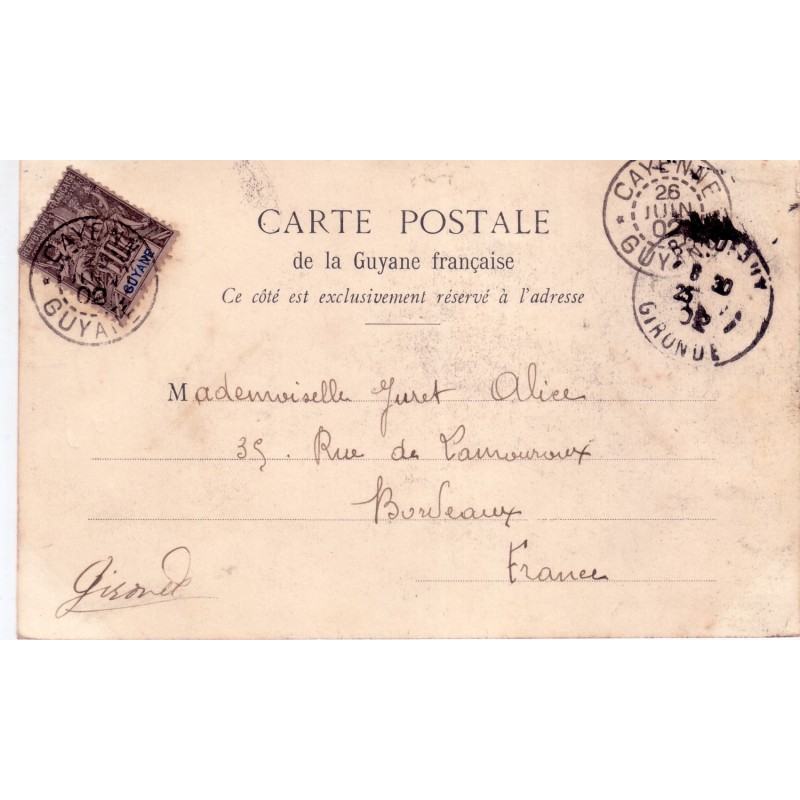 CAYENNE
02
GUYANE
10
GUYANE
CAYENNE
26
JUIN
02
GUYANE
CARTE POSTALE
de la Guyane française
Ce côté est exclusivement réservé à l'adresse
8 30
25
02
GIRONDE
Mademoiselle Juret Alice
35. Rue de Lamouroux
Bordeaux
France
Gironde